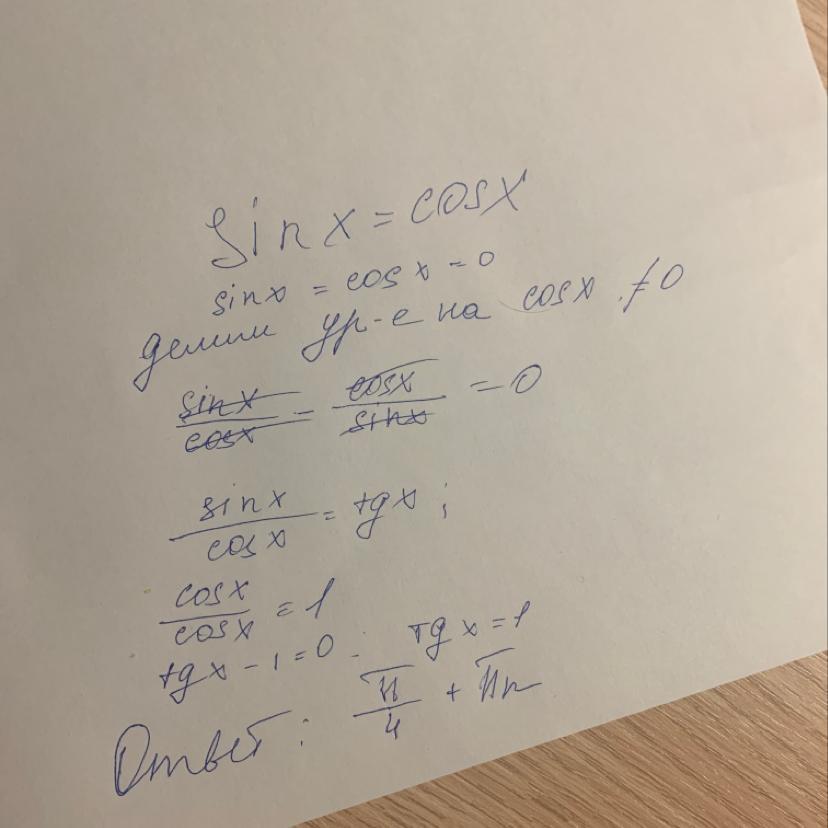 sin x = cos x
sin x = cos x - 0
делим ур-е на cos x ≠ 0
sin x / cos x - cos x / sin x = 0
sin x / cos x = tg x ;
cos x / cos x = 1
tg x - 1 = 0 . Tg x = 1
Ответ : π / 4 + πn